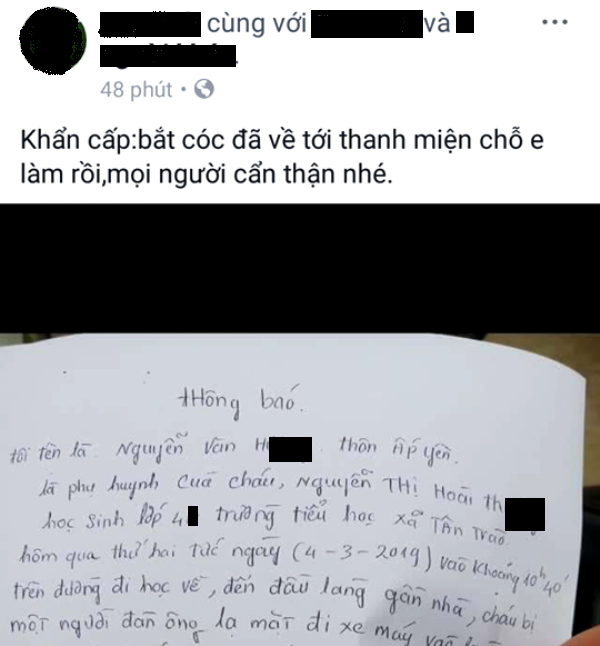 cùng với và
48 phút
Khẩn cấp:bắt cóc đã về tới thanh miện chỗ e
làm rồi,mọi người cẩn thận nhé.
thông baó.
tôi tên là Nguyễn Văn H thôn Ấp yên.
là phụ huynh cuả cháu, Nguyễn Thị Hoài th
học sinh lớp 4 trường tiểu học xã Tân Trào
hôm qua thứ hai tức ngày (4-3-2019) vào khoảng 10h40'
trên đường đi học về, đến đầu làng gần nhà, cháu bị
một người đàn ông lạ mặt đi xe máy